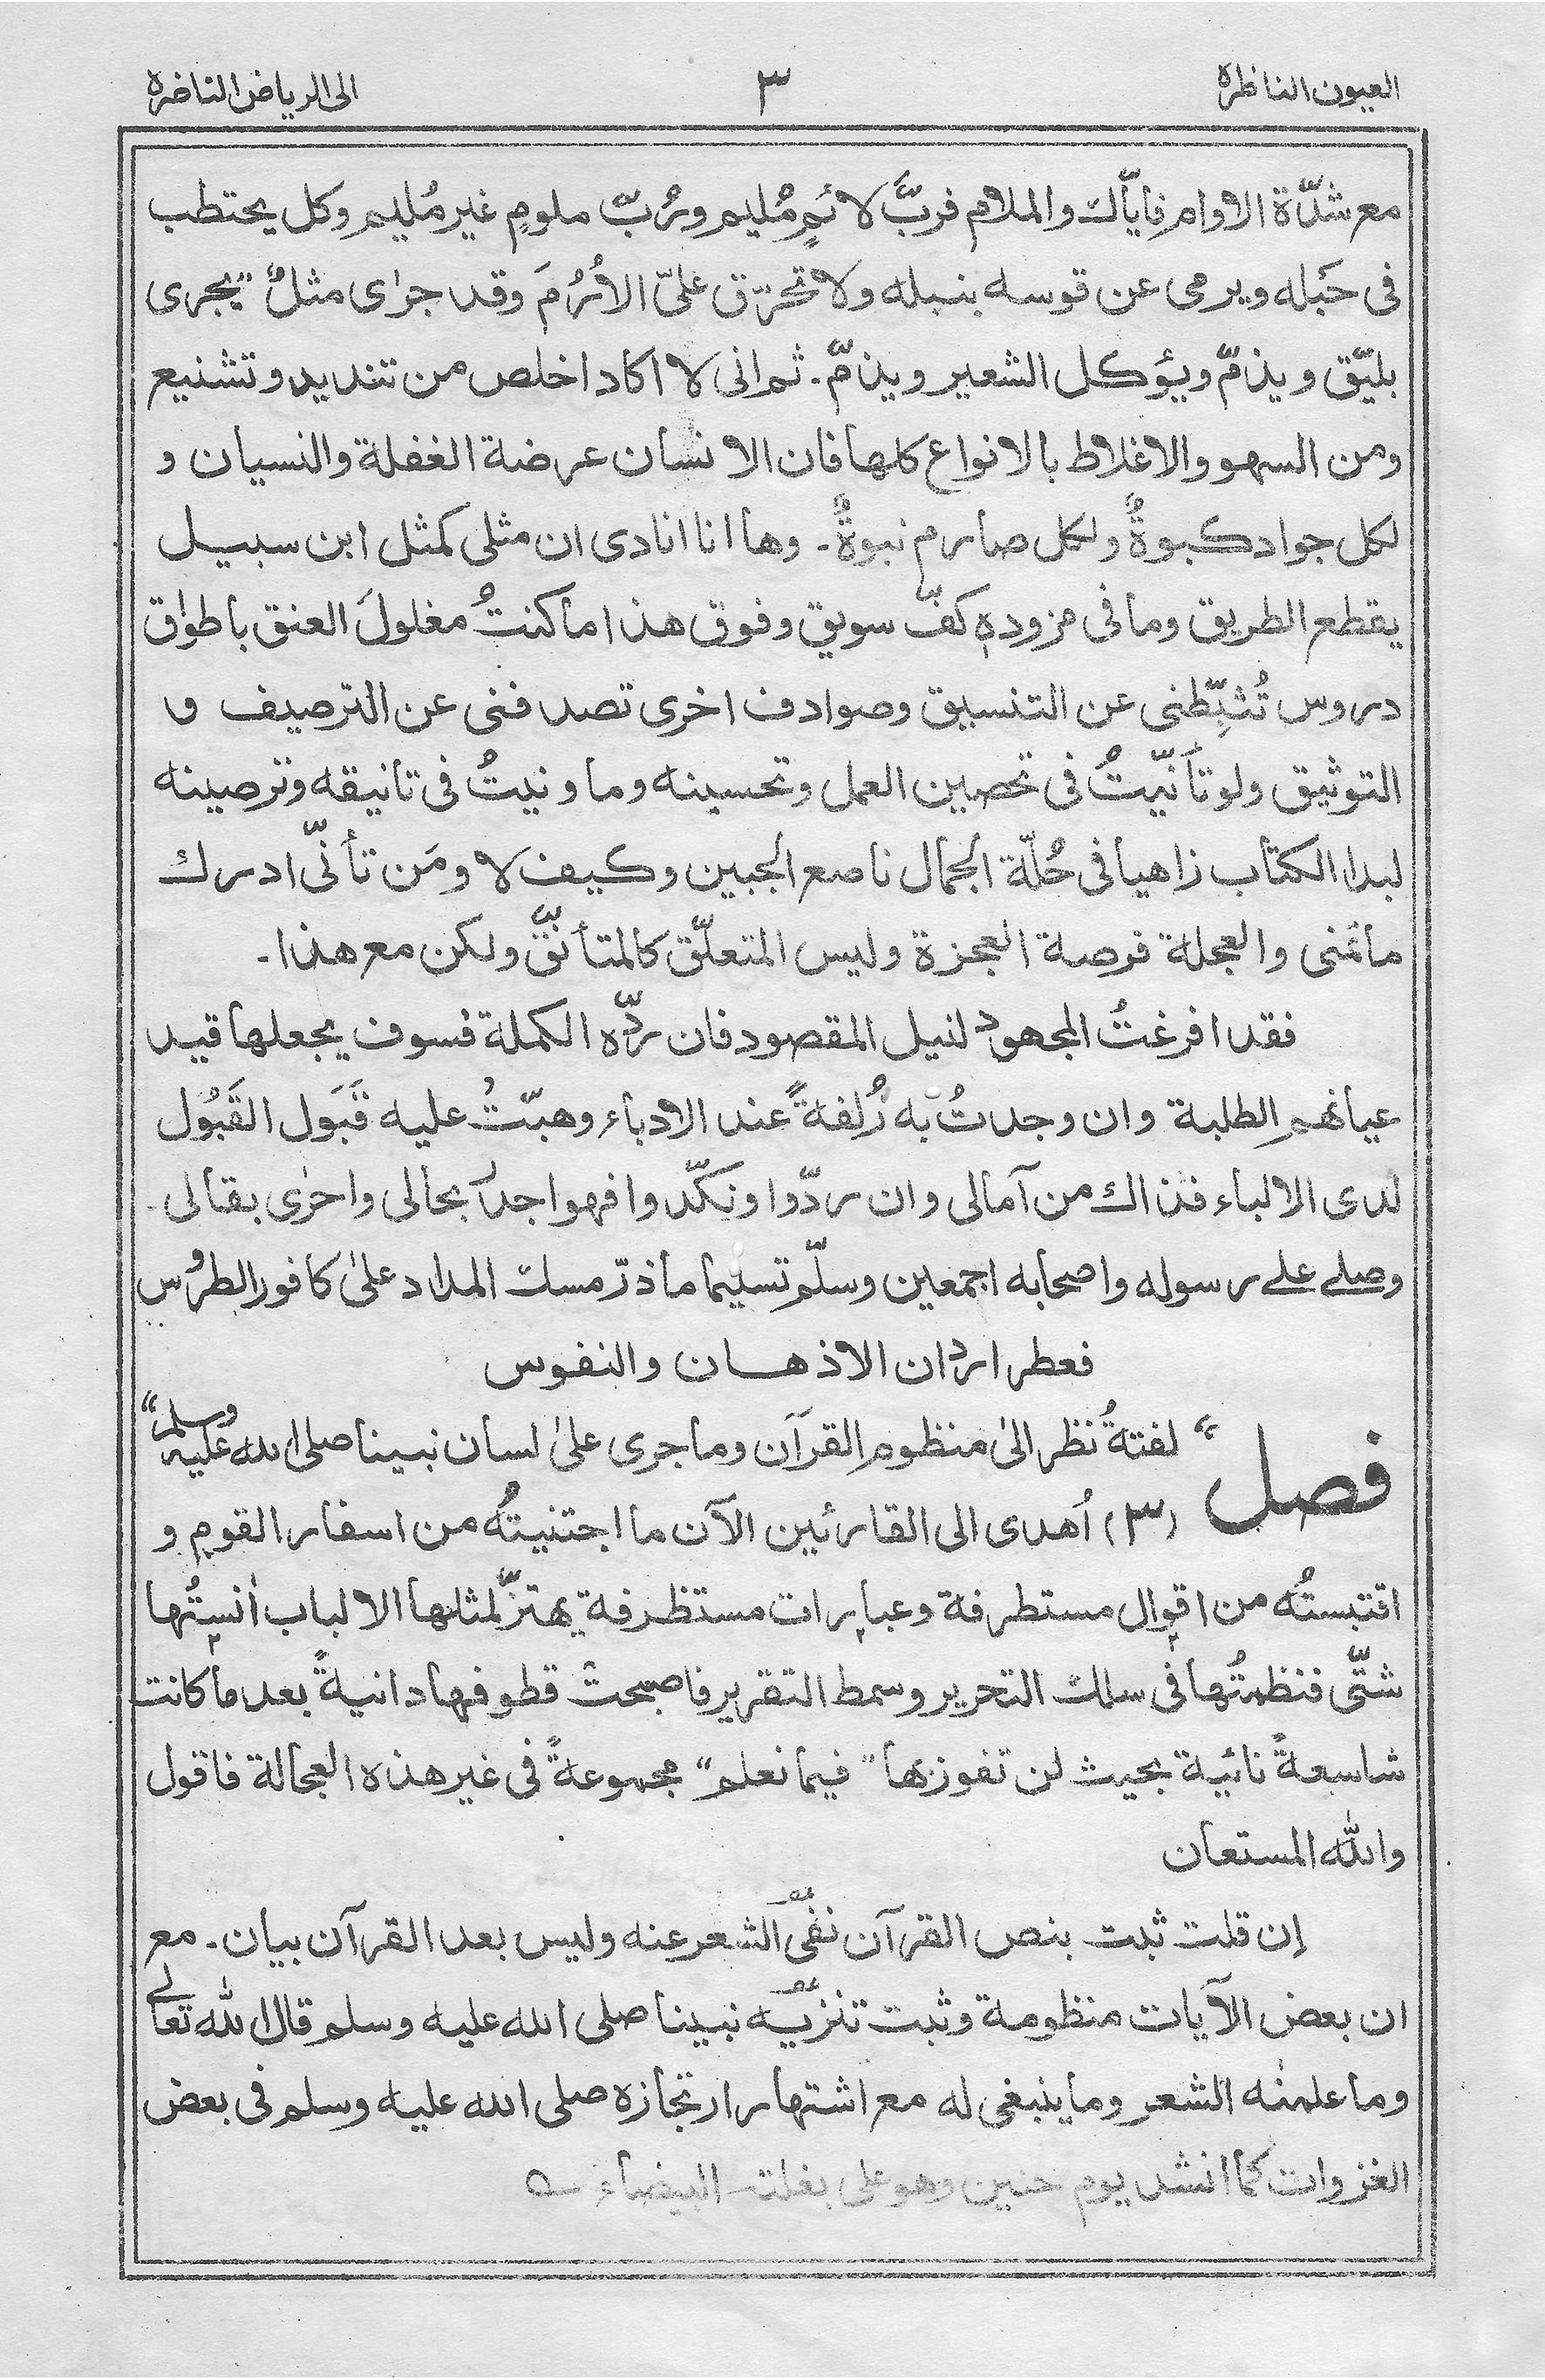 العيون الناظرة ٣ الى الرياض الناضرة
مع شدّة الاوام فاياّك والملام فربَّ لائمٍ مُليم ورُبّ ملومٍ غير مُليم وكل يحتطب
فى حَبله ويرمى عن قوسه بنبله ولا تحرّق علىّ الأُرَّمَ وقد جرٰى مثلٌ "يجرى
بليّق ويذمّ ويؤكل الشعير ويذمّ. ثم انى لا اكاد اخلص من تنديد وتشنيع
ومن السهو والاغلاط بالانواع كلها فان الانسان عرضة الغفلة والنسيان و
لكل جواد كبوةٌ ولكل صارم نبوةٌ. وها انا انادى ان مثلى كمثل ابن سبيل
يقطع الطريق وما فى مزودهٖ كفّ سويق وفوق هذا ما كنتُ مغلولَ العنق باطوٰاق
دروس تُثبِّطنى عن التنسيق وصوادف اخرى تصدفنى عن الترصيف و
التوثيق ولو تأَنّيتُ فى تحصين العمل وتحسينه وما ونيتُ فى تانيقه وترصينه
لبدا الكتاب زاهيا فى حُلّة الجمال ناصع الجبين وكيف لا ومَن تأنّى ادرك
ما تمنى والعجلة فرصة العجزة وليس المتعلّق كالمتأنّق ولكن مع هذا.
فقد افرغتُ المجهود لنيل المقصود فان ردّه الكملة فسوف يجعلها قيد
عيانهم الطلبة وان وجدتُ به زُلفةً عند الادباء وهبّتُ عليه قَبَول القَبُول
لدى الالباء فذاك من آمالى وان ردّوا ونكّدوا فهو اجدٰر بحالى واحرٰى بقالى.
وصلے علے رسوله واصحابه اجمعين وسلّم تسليما ما ذرّ مسك المداد علىٰ كافور الطرُوس
فعطر اردان الاذهان والنفوس
فصل "لفتةُ نظر الىٰ منظوم القرآن وما جرى علىٰ لسان نبينا صلى الله عليه وسلم"
(٣) اُهدى الى القارئين الآن ما اجتنيتُه من اسفار القوم و
اقتبستُه من اقوال مستطرفة وعبارات مستظرفة يهتزّ لمثلها الالباب اٰنستُها
شتّى فنظمتُها فى سلك التحرير وسمط التقرير فاصبحت قطوفها دانيةً بعد ما كانت
شاسعةً نائية بحيث لن تفوز بها "فيما نعلم" مجموعةً فى غير هذه العجالة فاقول
والله المستعان
إن قلت ثبت بنص القرآن نفىُ الشعر عنه وليس بعد القرآن بيان. مع
ان بعض الآيات منظومة وثبت تنزيه نبينا صلى الله عليه وسلم قال الله تعالٰے
وما علمنٰه الشعر وما ينبغى له مع اشتهار ارتجازه صلى الله عليه وسلم فى بعض
الغزوات كما انشد يوم حنين وهو على بغلته البيضاء